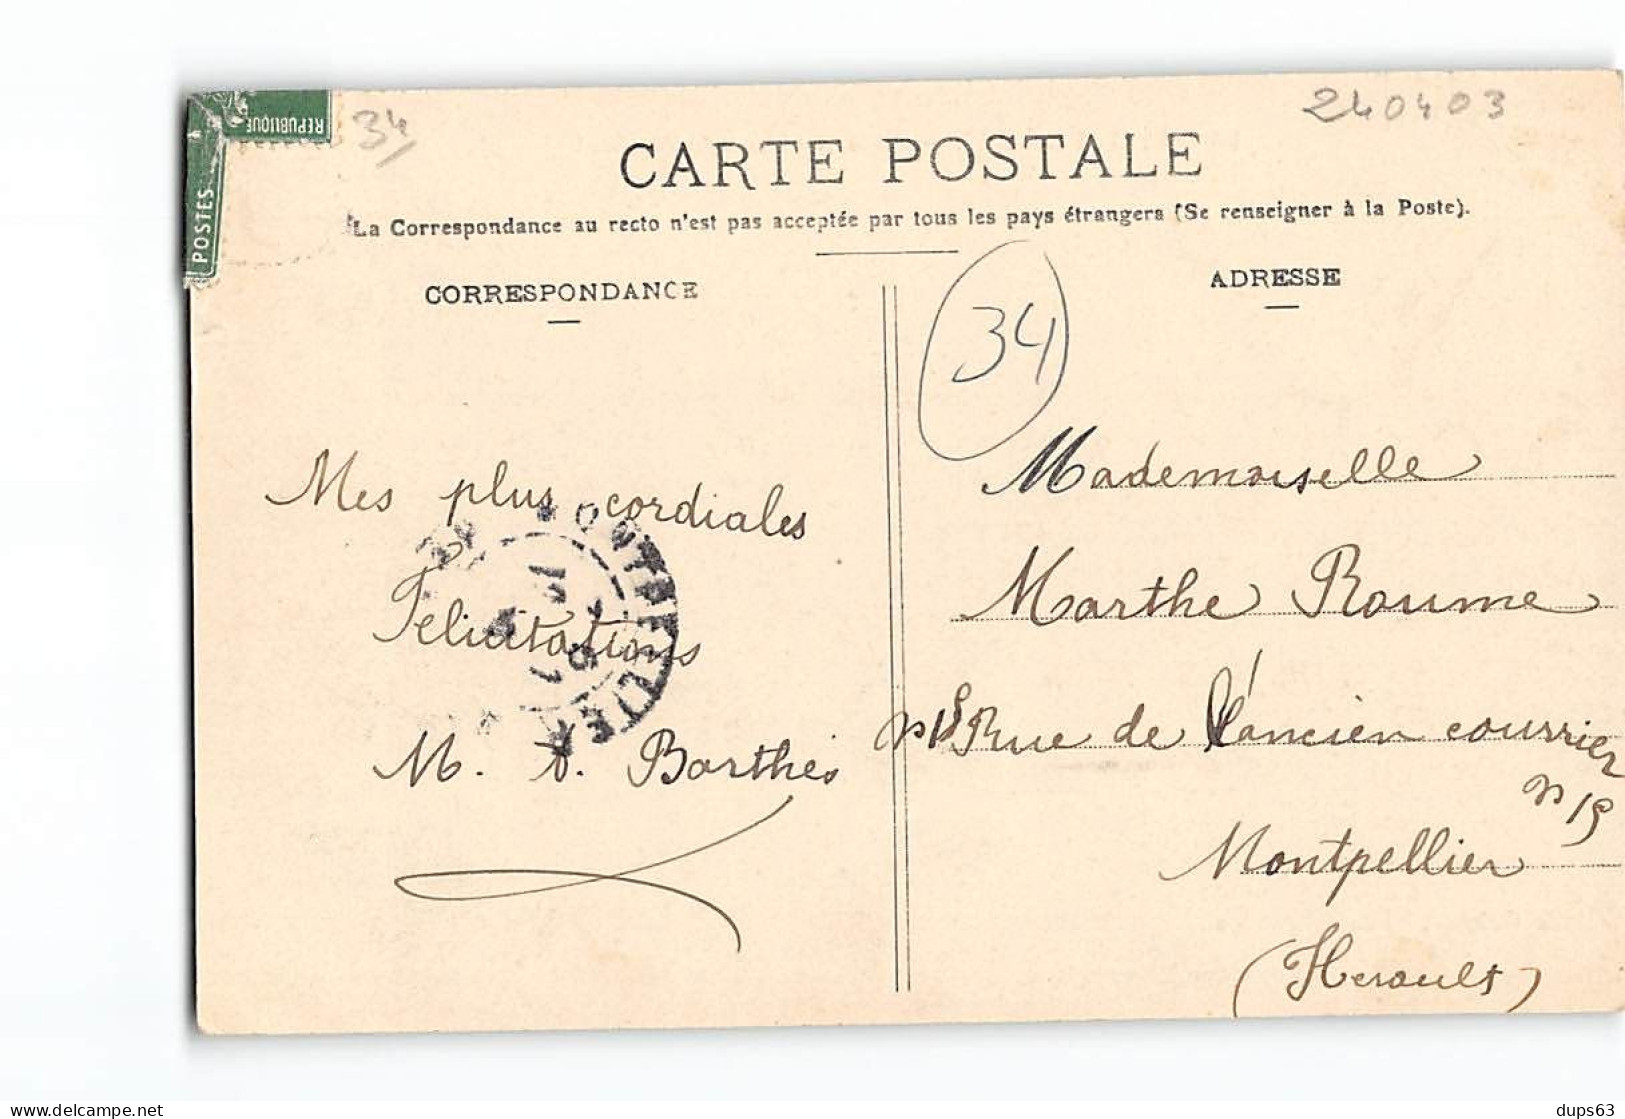 REPUBLIQUE
POSTES
34
240403
CARTE POSTALE
La Correspondance au recto n'est pas acceptée par tous les pays étrangers (Se renseigner à la Poste).
CORRESPONDANCE
Mes plus cordiales
Félicitations
M. A. Barthès
MONTPELLIER
34
ADRESSE
Mademoiselle
Marthe Roume
n 15 Rue de l'ancien courrier
n 15
Montpellier
(Herault)
delcampe.net
dups63